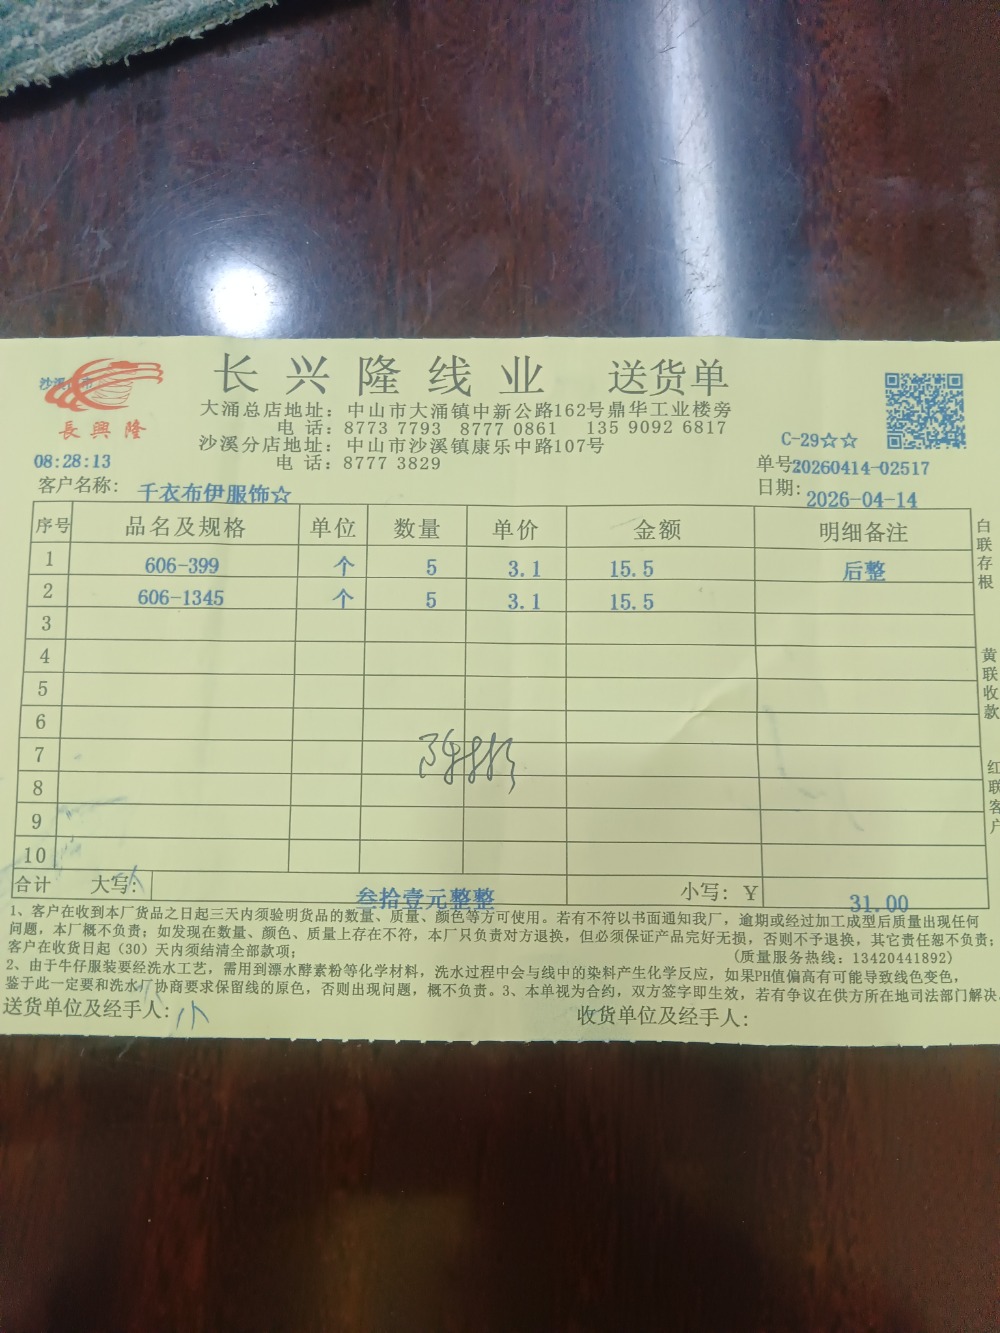 长兴隆线业 送货单
大涌总店地址：中山市大涌镇中新公路162号鼎华工业楼旁
电 话：8773 7793 8777 0861 135 9092 6817
沙溪分店地址：中山市沙溪镇康乐中路107号
电 话：8777 3829
長興隆
08:28:13
C-29☆☆
单号:20260414-02517
客户名称： 千衣布伊服饰☆
日期: 2026-04-14
序号 品名及规格 单位 数量 单价 金额 明细备注
1 606-399 个 5 3.1 15.5 后整
2 606-1345 个 5 3.1 15.5
3
4
5
6
7
8
9
10
合计 大写: 叁拾壹元整整 小写: Ｙ 31.00
白联存根
黄联收款
红联客户
1、客户在收到本厂货品之日起三天内须验明货品的数量、质量、颜色等方可使用。若有不符以书面通知我厂，逾期或经过加工成型后质量出现任何
问题，本厂概不负责；如发现在数量、颜色、质量上存在不符，本厂只负责对方退换，但必须保证产品完好无损，否则不予退换，其它责任恕不负责；
客户在收货日起（30）天内须结清全部款项；（质量服务热线：13420441892）
2、由于牛仔服装要经洗水工艺，需用到漂水酵素粉等化学材料，洗水过程中会与线中的染料产生化学反应，如果PH值偏高有可能导致线色变色，
鉴于此一定要和洗水厂协商要求保留线的原色，否则出现问题，概不负责。3、本单视为合约，双方签字即生效，若有争议在供方所在地司法部门解决。
送货单位及经手人: 收货单位及经手人: